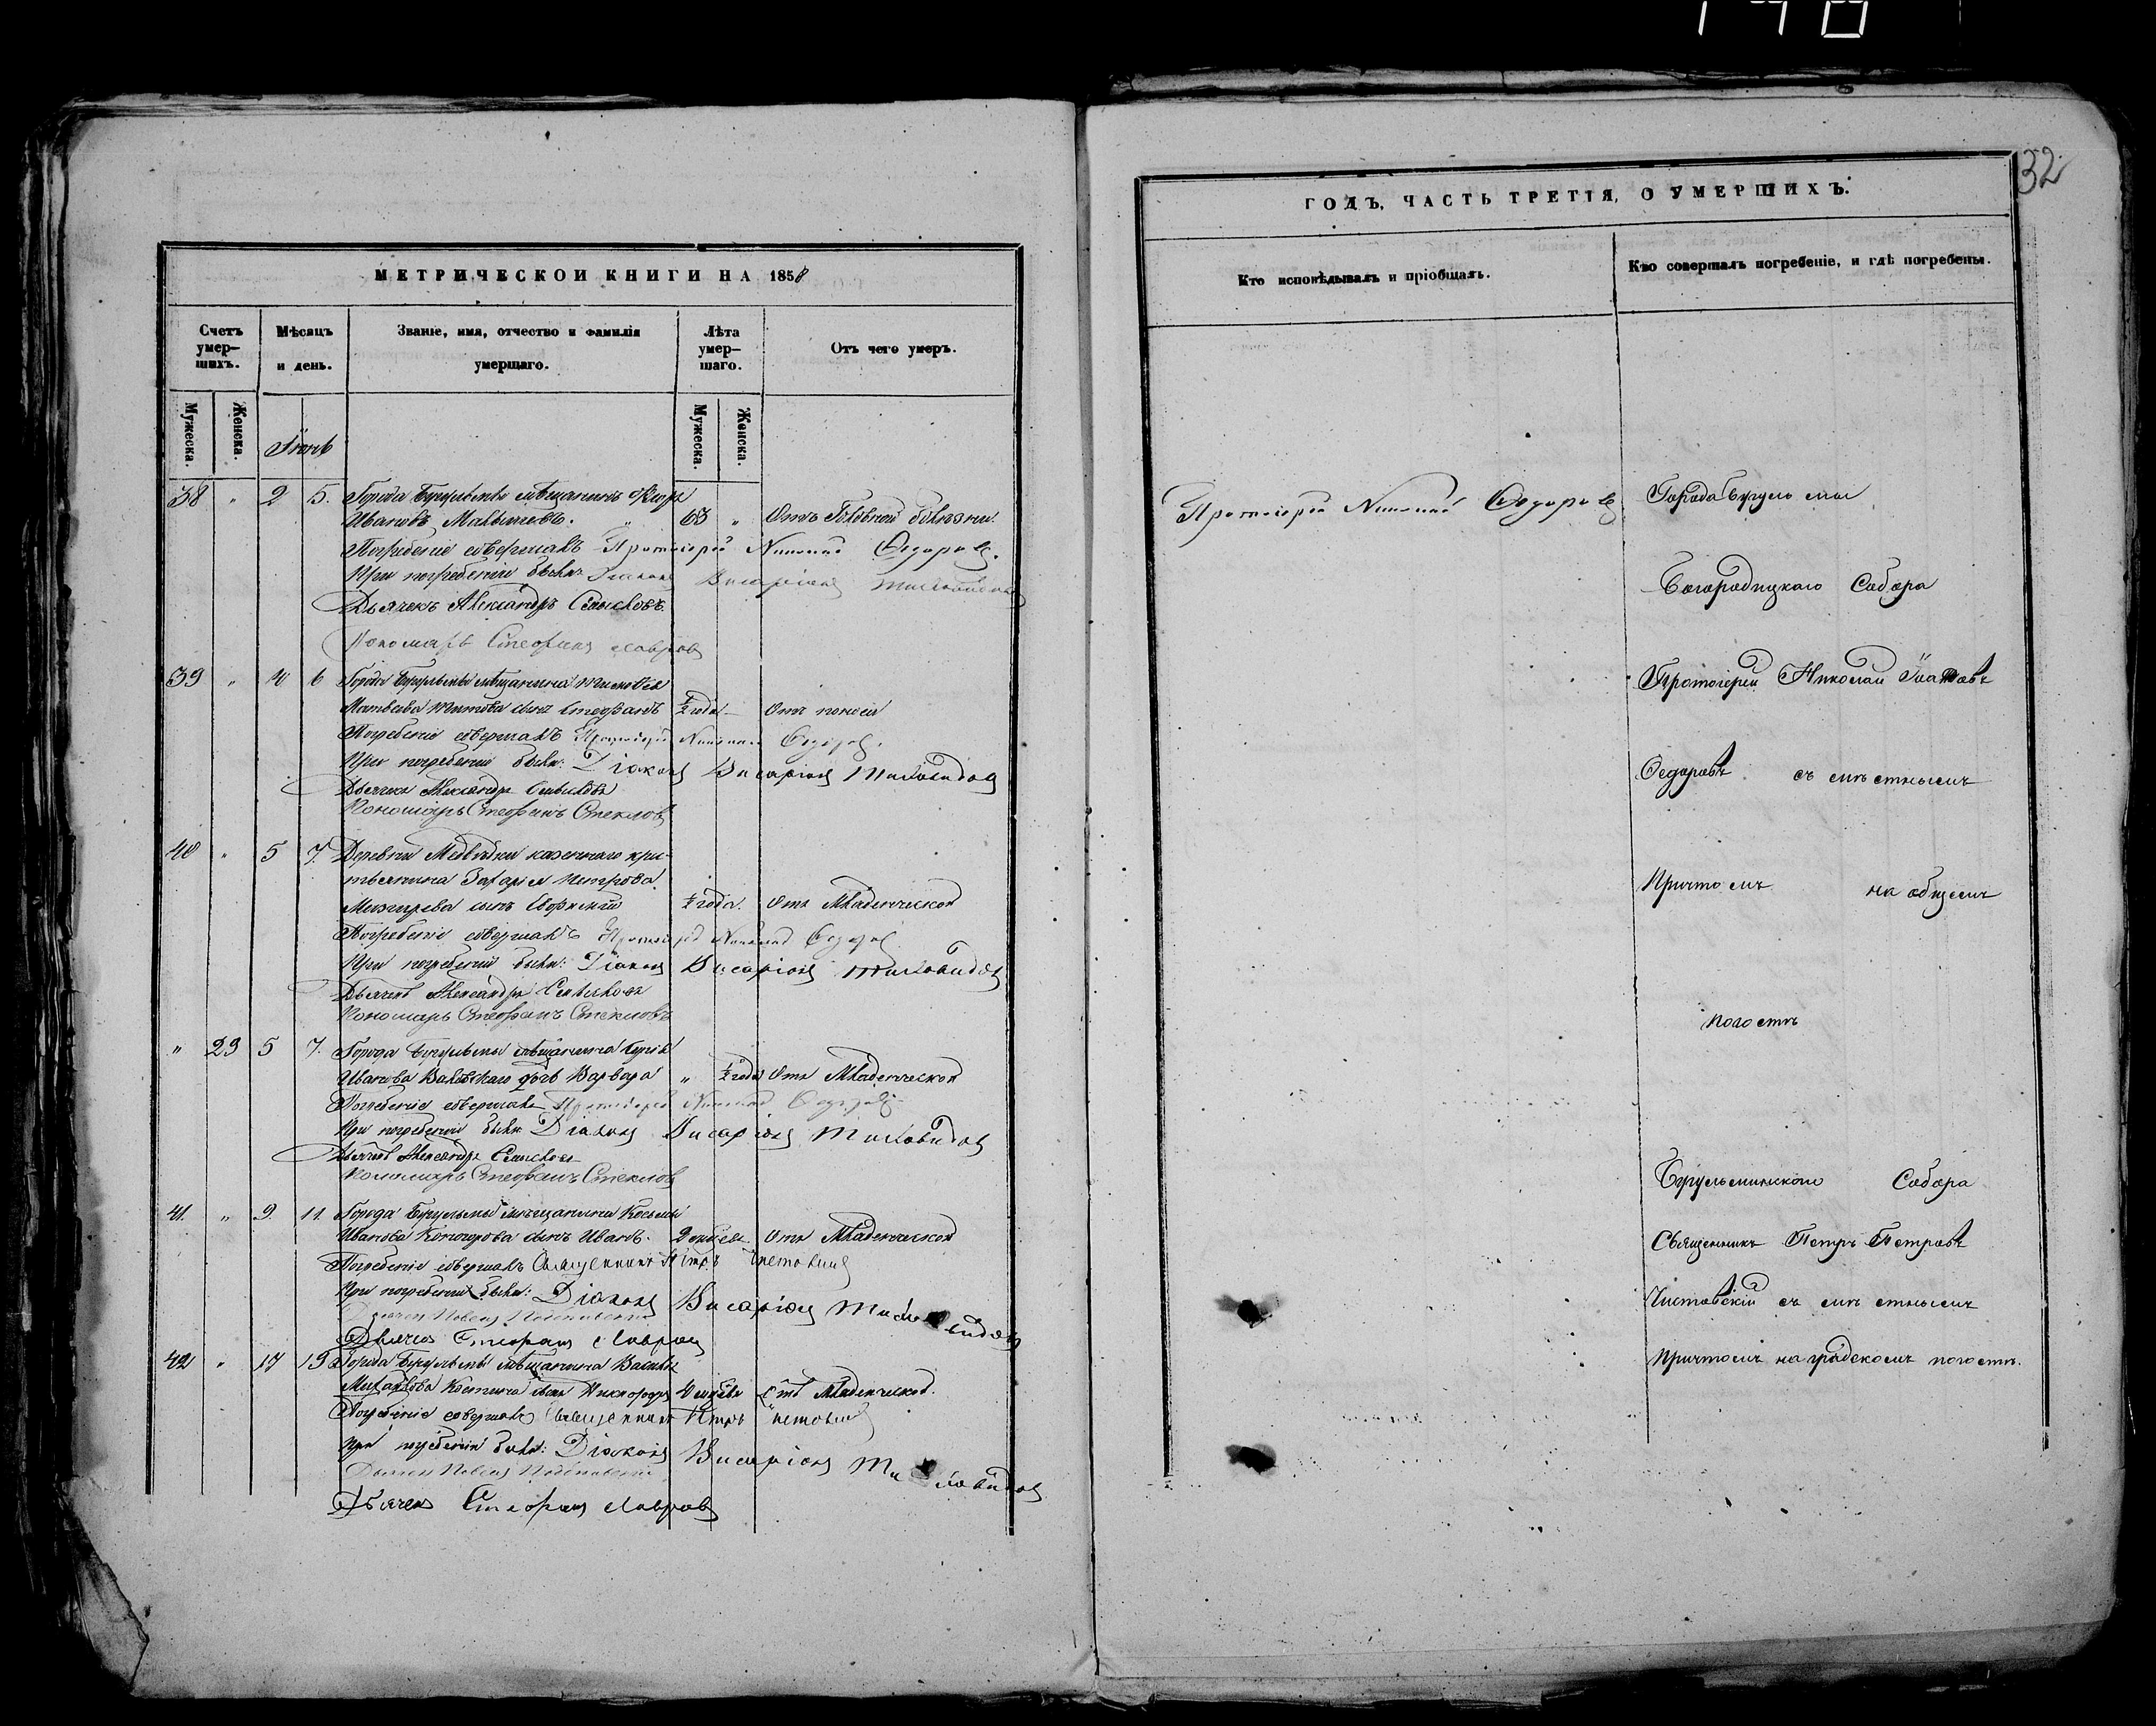 МЕТРИЧЕСКОЙ КНИГИ НА 1858
Счетъ умер-шихъ.
Мѣсяцъ и день.
Званіе, имя, отчество и фамилія умершаго.
Лѣта умер-шаго.
Отъ чего умеръ.
Мужеска.
Женска.
Мужеска.
Женска.
Іюнь
38 " 2 5. Города Бугульмы мѣщанинъ
Ивановъ 63 " Отъ Головной болѣзни.
Погребеніе совершалъ Протоіерей Николай Федоровъ.
При погребеніи были Діаконъ Висаріонъ Миловидовъ
Дьячекъ Александръ Смысловъ.
Пономарь Стефанъ Лавровъ
39 " 4 6 Города Бугульмы мѣщанина Тимофея
Матвѣева Титова сынъ Стефанъ ½ года Отъ поноса
Погребеніе совершалъ Протоіерей Николай Федоровъ.
При погребеніи были: Діаконъ Висаріонъ Миловидовъ
Дьячекъ Александръ Смысловъ
Пономарь Стефанъ Стекловъ
40 " 5 7. Деревни Медвѣдки казеннаго кре-
стьянина Захарія Петрова
сынъ ½ года. Отъ Младенческой
Погребеніе совершалъ Протоіерей Николай Федоровъ
При погребеніи были: Діаконъ Висаріонъ Миловидовъ
Дьячекъ Александръ Смысловъ
Пономарь Стефанъ Стекловъ
" 29 5 7. Города Бугульмы мѣщанина
Иванова дочь Варвара " ½ года Отъ Младенческой
Погребеніе совершалъ Протоіерей Николай Федоровъ
При погребеніи были Діаконъ Висаріонъ Миловидовъ
Дьячекъ Александръ Смысловъ
Пономарь Стефанъ Стекловъ
41. " 9. 11. Города Бугульмы мѣщанина Косьмы
Иванова сынъ Иванъ. Отъ Младенческой
Погребеніе совершалъ Священникъ Петръ Чистовскій
При погребеніи были: Діаконъ Висаріонъ Миловидовъ
Дьячекъ Павелъ
Дьячекъ Стефанъ Лавровъ
42 " 17 19 Города Бугульмы мѣщанина Василья
Михайлова Костина сынъ Никифоръ Отъ Младенческой.
Погребеніе совершалъ Священникъ Петръ Чистовскій
При погребеніи были: Діаконъ Висаріонъ Миловидовъ
Дьячекъ Павелъ
Дьячекъ Стефанъ Лавровъ
32
ГОДЪ, ЧАСТЬ ТРЕТІЯ, О УМЕРШИХЪ.
Кто исповѣдывалъ и пріобщалъ.
Кто совершалъ погребеніе, и гдѣ погребены.
Протоіерей Николай Федоровъ
Города Бугульмы
Богородицкаго Собора
Протоіерей Николай
Федоровъ съ мѣстнымъ
Причтомъ на общемъ
погостѣ
Бугульминскаго Собора
Священникъ Петръ Петровъ
Чистовскій съ мѣстнымъ
Причтомъ на градскомъ погостѣ.